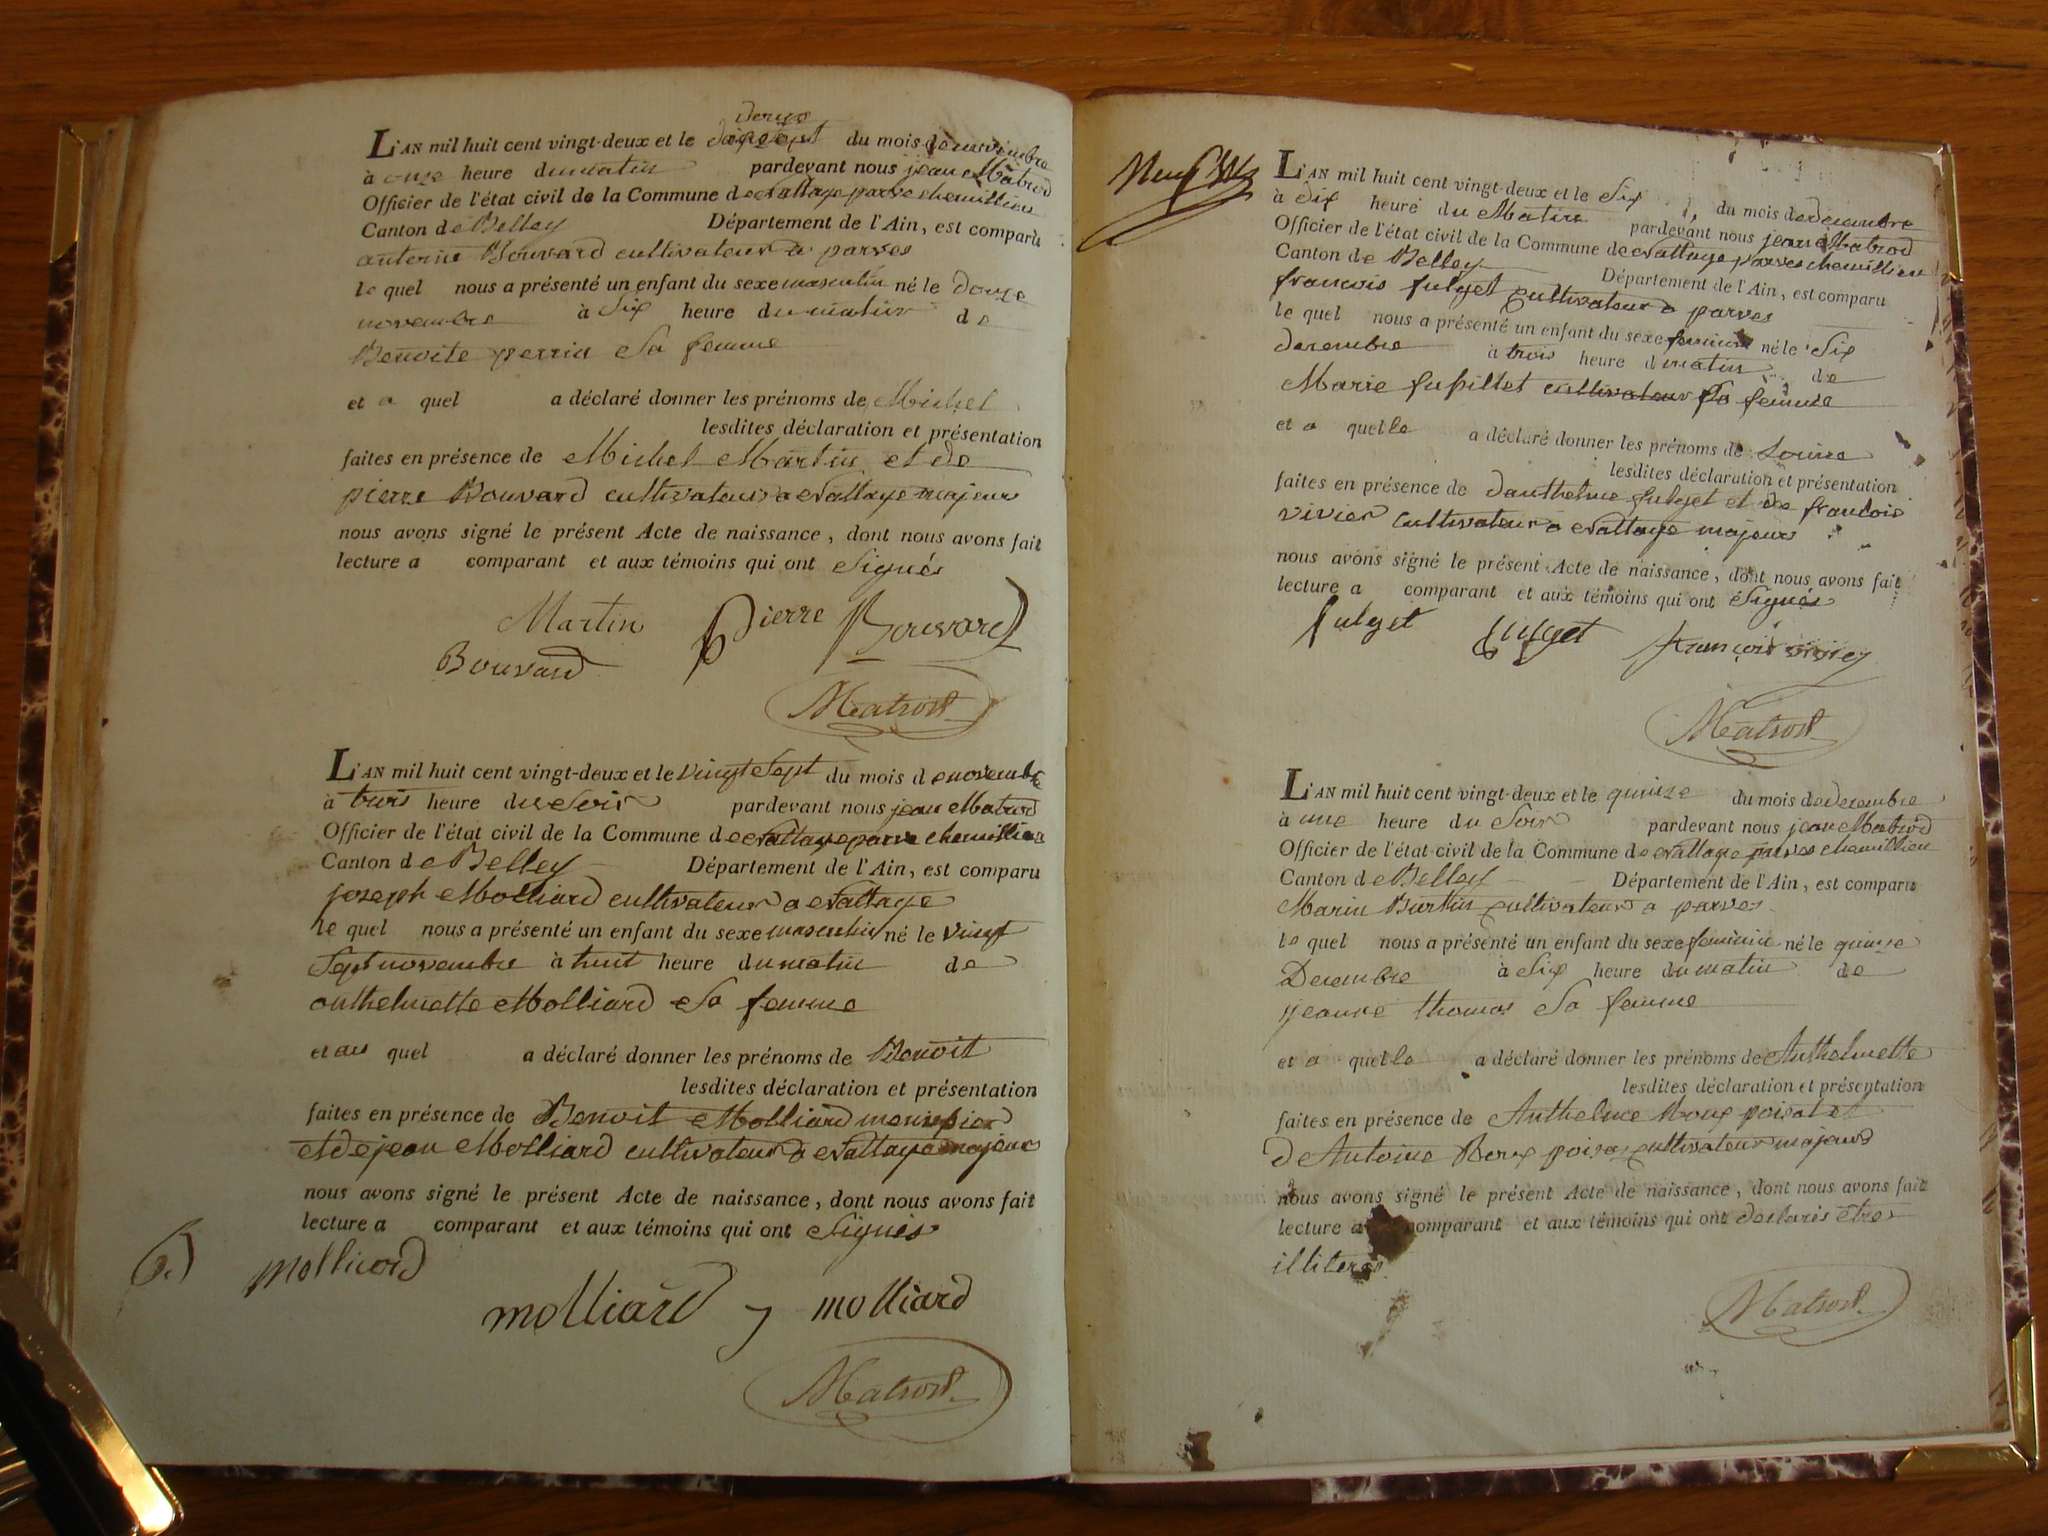 L'AN mil huit cent vingt-deux et le du mois de novembre
à onze heure du matin pardevant nous jean Matrod
Officier de l'état civil de la Commune de parve chemillieu
Canton de Belley Département de l'Ain, est comparu
antoine Bouvard cultivateur a parves
le quel nous a présenté un enfant du sexe masculin né le douze
novembre à Six heure du matin de
Benoite perrin Sa femme
et a quel a déclaré donner les prénoms de Michel
lesdites déclaration et présentation
faites en présence de Michel Martin et de
pierre Bouvard cultivateur a majeurs
nous avons signé le présent Acte de naissance, dont nous avons fait
lecture a comparant et aux témoins qui ont Signés
Martin Pierre Bouvard
Bouvard
Matrod
L'AN mil huit cent vingt-deux et le vingt Sept du mois de novembre
à trois heure du Soir pardevant nous jean Matrod
Officier de l'état civil de la Commune de parve chemillieu
Canton de Belley Département de l'Ain, est comparu
joseph Molliard cultivateur a
le quel nous a présenté un enfant du sexe masculin né le vingt
Sept novembre à huit heure du matin de
anthelmette Molliard Sa femme
et au quel a déclaré donner les prénoms de Benoit
lesdites déclaration et présentation
faites en présence de Benoit Molliard
et de jean Molliard cultivateur a majeurs
nous avons signé le présent Acte de naissance, dont nous avons fait
lecture a comparant et aux témoins qui ont Signés
molliard
molliard molliard
Matrod
L'AN mil huit cent vingt-deux et le Six du mois de decembre
à dix heure du Matin pardevant nous jean Matrod
Officier de l'état civil de la Commune de parves chemillieu
Canton de Belley Département de l'Ain, est comparu
francois fulget cultivateur a parves
le quel nous a présenté un enfant du sexe feminin né le Six
decembre à trois heure d matin de
Marie cultivateur Sa femme
et a quelle a déclaré donner les prénoms de Louise
lesdites déclaration et présentation
faites en présence de danthelme fulget et de francois
vivier cultivateur a majeurs
nous avons signé le présent Acte de naissance, dont nous avons fait
lecture a comparant et aux témoins qui ont Signés
fulget fulget françois
Matrod
L'AN mil huit cent vingt-deux et le quinze du mois de decembre
à une heure du Soir pardevant nous jean Matrod
Officier de l'état civil de la Commune de parves chemillieu
Canton de Belley Département de l'Ain, est comparu
Marin Burtin cultivateur a parves
le quel nous a présenté un enfant du sexe feminin né le quinze
Decembre à Six heure du matin de
jeanne thomas Sa femme
et a quelle a déclaré donner les prénoms de Anthelmette
lesdites déclaration et présentation
faites en présence de Anthelme Roux
d Antoine cultivateur majeurs
nous avons signé le présent Acte de naissance, dont nous avons fait
lecture a comparant et aux témoins qui ont declarés etre
illiteres
Matrod